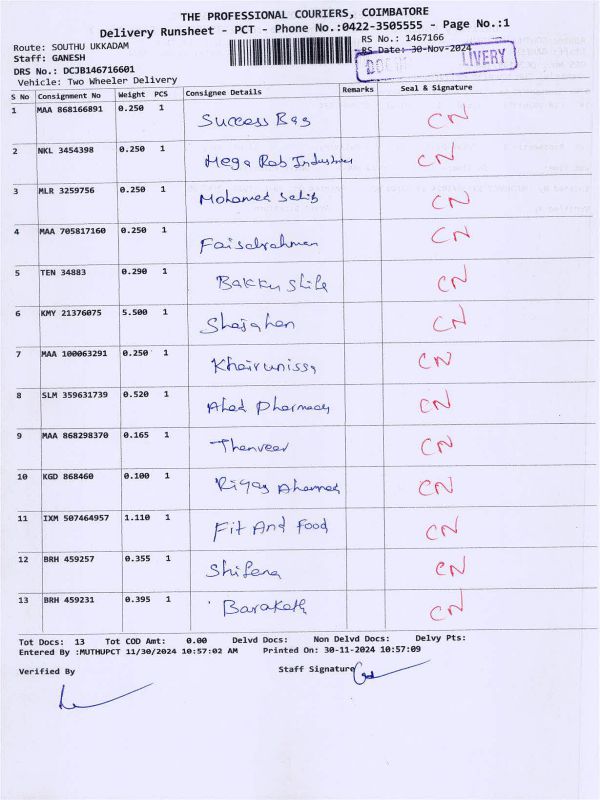 THE PROFESSIONAL COURIERS, COIMBATORE
Delivery Runsheet - PCT - Phone No.:0422-3505555 - Page No.:1
Route: SOUTHU UKKADAM RS No.: 1467166
Staff: GANESH RS Date: 30-Nov-2024
DRS No.: DCJB146716601 LIVERY
Vehicle: Two Wheeler Delivery
S No Consignment No Weight PCS Consignee Details Remarks Seal & Signature
1 MAA 868166891 0.250 1 Success Bag CN
2 NKL 3454398 0.250 1 Mega Rob Industries CN
3 MLR 3259756 0.250 1 Mohamed CN
4 MAA 705817160 0.250 1 Faisalrahman CN
5 TEN 34883 0.290 1 CN
6 KMY 21376075 5.500 1 Shajahan CN
7 MAA 100063291 0.250 1 Khairunissa CN
8 SLM 359631739 0.520 1 Ahad Pharmacy CN
9 MAA 868298370 0.165 1 Thanveer CN
10 KGD 868460 0.100 1 Riyas Ahamed CN
11 IXM 507464957 1.110 1 Fit And Food CN
12 BRH 459257 0.355 1 Shifana CN
13 BRH 459231 0.395 1 Barakath CN
Tot Docs: 13 Tot COD Amt: 0.00 Delvd Docs: Non Delvd Docs: Delvy Pts:
Entered By :MUTHUPCT 11/30/2024 10:57:02 AM Printed On: 30-11-2024 10:57:09
Verified By Staff Signature